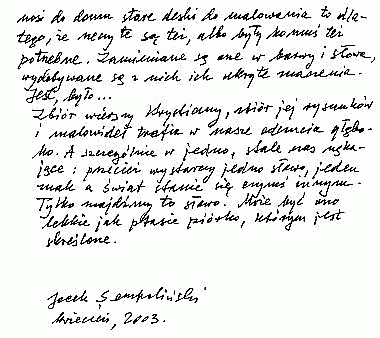 nosi do domu stare deski do malowania to dla-
tego, że ceny te są też, albo były komuś też
potrzebne. Zamieniane są one w barwy i słowa,
wydobywane są z nich ich ukryte marzenia.
Jest, było...
Zbiór wierszy Krystiany, zbiór jej rysunków
i malowideł trafia w nasze odczucia głębo-
ko. A szczególnie w jedno, stale nas nęka-
jące: przecież wystarczy jedno słowo, jeden
znak a świat stanie się czymś innym.
Tylko znajdźmy to słowo. Może być ono
lekkie jak ptasie piórko, którym jest
skreślone.
Jacek Sempoliński
kwiecień, 2003.